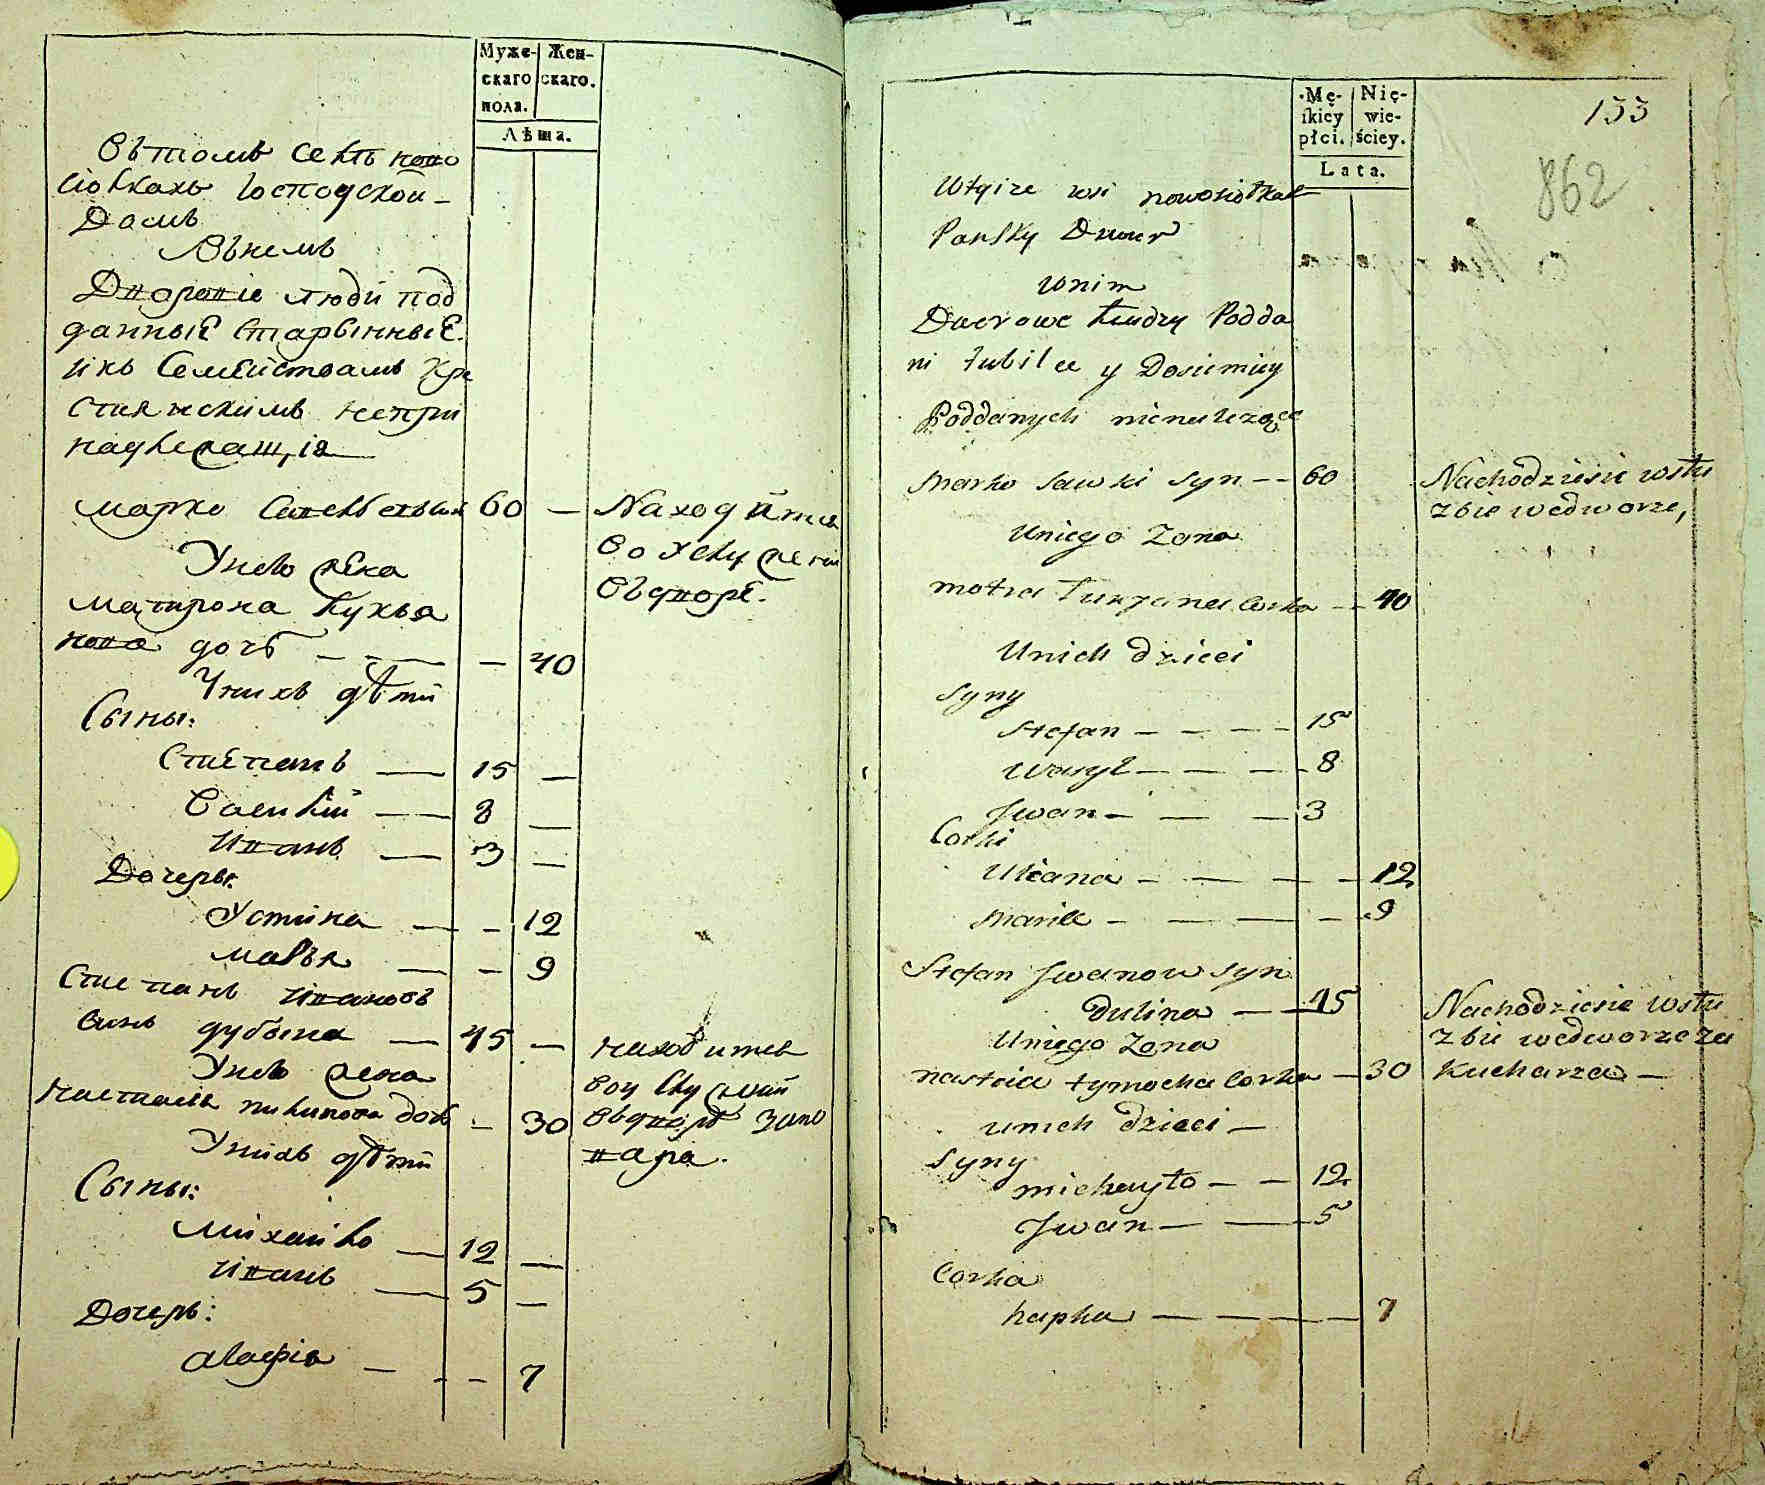 Муже-
скаго
пола.
Жен-
скаго.
Лѣта.
Въ томъ селѣ ново
сіолкахъ господской
Домъ
Въ немъ
Дворовіе люди под
данные старынные
икъ Семействамъ Кре
стиянскимъ непри
надлежащ,ія
марко Савельевъ 60 —
Находится
во услужении
въ дворе.
У нево жена
матрона Лукья
нова дочь — — — 40
У нихъ дѣти
Сыны:
Степанъ — 15 —
Василий — 8 —
Иванъ — 3 —
Дочеры:
Устина — — 12
марья — — 9
Степанъ Ивановъ
сынъ дубына — 45 —
У нево жена
настасья дочь — 30
находитца
во услужении
въ дворѣ за по
вара.
У нихъ дѣти
Сыны:
Михайло — 12 —
Иванъ — 5 —
Дочерь:
агафія — - - 7
Mę-
ſkiey
płci.
Nię-
wie-
ściey.
Lata.
133
862
w tyize wsi nowosiołkah
Pansky Dwor
w nim
Dworowe Ludzy Podda
ni y
Poddanych nienalezące
Marko Sawki syn -- 60
Nachodziesie wsłu
zbie wedworze,
U niego Zona
motra corka -- 40
U nich dzieci
Syny
Stefan — — — — 15
Wasyl — — — — 8
Jwan — — — 3
Corki
Uliana — — — — 12
Maria — — — — 9
Stefan Jwanow syn
dulina — — 45
Nachodziesie wsłu
zbie wedworze za
Kucharza —
U niego Zona
nastcia tymocha Corka — 30
U nich dzieci —
Syny
michayło — — 12
Jwan — — 5
Corka
hapka — — — — 7